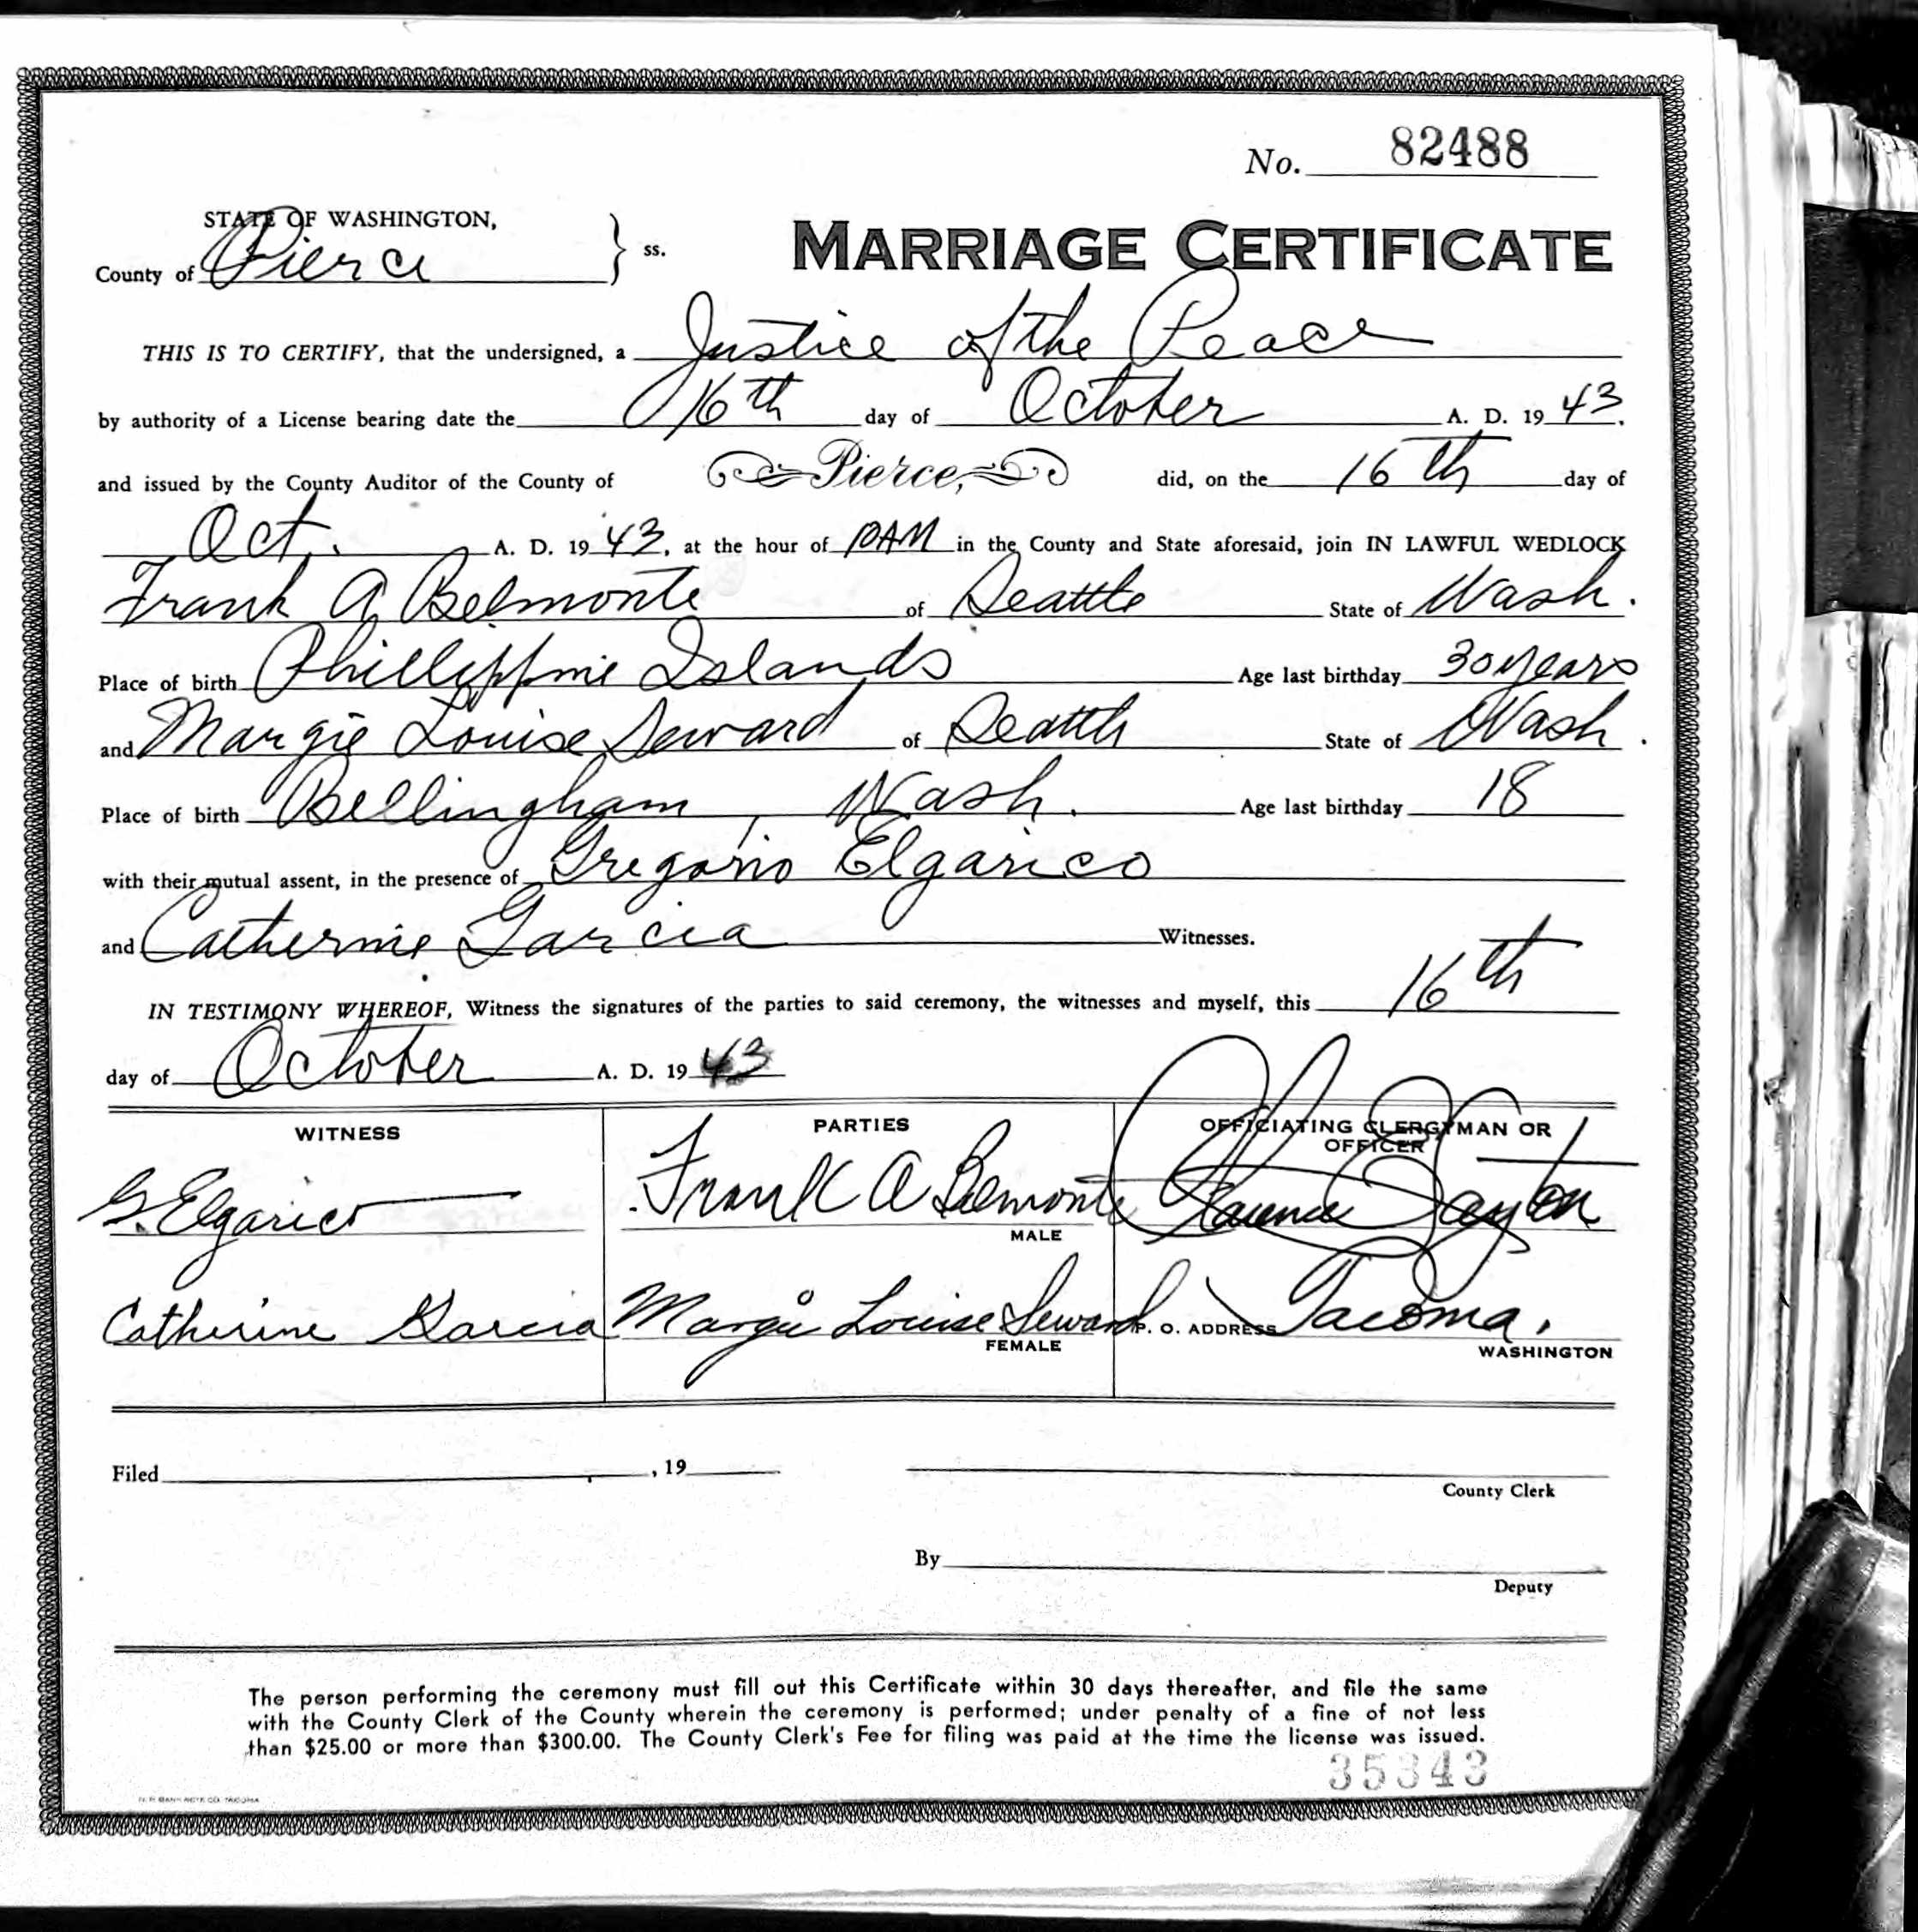 No. 82488
STATE OF WASHINGTON,
County of Pierce } ss.
MARRIAGE CERTIFICATE
THIS IS TO CERTIFY, that the undersigned, a Justice of the Peace
by authority of a License bearing date the 16th day of October A. D. 1943.
and issued by the County Auditor of the County of Pierce, did, on the 16th day of
Oct. A. D. 1943, at the hour of 10AM in the County and State aforesaid, join IN LAWFUL WEDLOCK
Frank A Belmonte of Seattle State of Wash.
Place of birth Phillippine Islands Age last birthday 30 years
and Margie Louise Seward of Seattle State of Wash.
Place of birth Bellingham, Wash. Age last birthday 18
with their mutual assent, in the presence of Gregorio Elgarico
and Catherine Garcia Witnesses.
IN TESTIMONY WHEREOF, Witness the signatures of the parties to said ceremony, the witnesses and myself, this 16th
day of October A. D. 1943
WITNESS
G. Elgarico
Catherine Garcia
PARTIES
Frank A Belmonte
MALE
Margie Louise Seward
FEMALE
OFFICIATING CLERGYMAN OR
OFFICER
Clarence Layton
P. O. ADDRESS Tacoma,
WASHINGTON
Filed , 19
County Clerk
By
Deputy
The person performing the ceremony must fill out this Certificate within 30 days thereafter, and file the same
with the County Clerk of the County wherein the ceremony is performed; under penalty of a fine of not less
than $25.00 or more than $300.00. The County Clerk's Fee for filing was paid at the time the license was issued.
35343